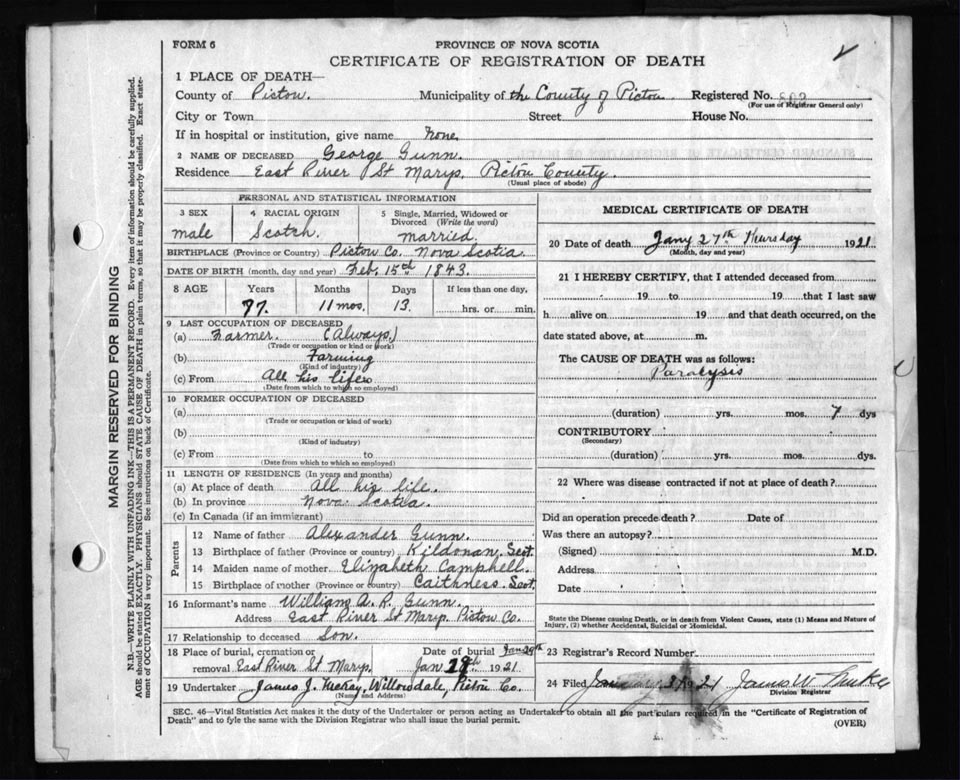 FORM 6
PROVINCE OF NOVA SCOTIA
CERTIFICATE OF REGISTRATION OF DEATH
1 PLACE OF DEATH—
County of Pictou. Municipality of the County of Pictou Registered No.
(For use of Registrar General only)
City or Town Street House No.
If in hospital or institution, give name None.
2 NAME OF DECEASED George Gunn.
Residence East River St Marys. Pictou County.
(Usual place of abode)
PERSONAL AND STATISTICAL INFORMATION
3 SEX 4 RACIAL ORIGIN 5 Single, Married, Widowed or Divorced (Write the word)
male Scotch. married.
BIRTHPLACE (Province or Country) Pictou Co. Nova Scotia.
DATE OF BIRTH (month, day and year) Feb. 15th 1843.
8 AGE Years Months Days If less than one day,
77. 11 mos. 13. hrs. or min.
9 LAST OCCUPATION OF DECEASED
(a) Farmer. (Always)
(Trade or occupation or kind of work)
(b) Farming
(Kind of industry)
(c) From All his life.
(Date from which to which so employed)
10 FORMER OCCUPATION OF DECEASED
(a)
(Trade or occupation or kind of work)
(b)
(Kind of industry)
(c) From to
(Date from which to which so employed)
11 LENGTH OF RESIDENCE (In years and months)
(a) At place of death All his life.
(b) In province Nova Scotia.
(c) In Canada (if an immigrant)
Parents
12 Name of father Alexander Gunn.
13 Birthplace of father (Province or country) Kildonan, Scot.
14 Maiden name of mother Elizabeth Campbell.
15 Birthplace of mother (Province or Country) Caithness. Scot.
16 Informant's name William A. R. Gunn.
Address East River St Marys. Pictou Co.
17 Relationship to deceased Son.
18 Place of burial, cremation or Date of burial Jan 29th
removal East River St Marys. Jan 29th 1921
19 Undertaker James J. McKay, Willowdale, Pictou Co.
(Name and Address)
MEDICAL CERTIFICATE OF DEATH
20 Date of death Jany 27th Thursday 1921
(Month, day and year)
21 I HEREBY CERTIFY, that I attended deceased from
19 to 19 that I last saw
h alive on 19 and that death occurred, on the
date stated above, at m.
The CAUSE OF DEATH was as follows:
Paralysis
(duration) yrs. mos. 7 dys
CONTRIBUTORY
(Secondary)
(duration) yrs. mos. dys.
22 Where was disease contracted if not at place of death?
Did an operation precede death? Date of
Was there an autopsy?
(Signed) M.D.
Address
Date
State the Disease causing Death, or in death from Violent Causes, state (1) Means and Nature of
Injury, (2) whether Accidental, Suicidal or Homicidal.
23 Registrar's Record Number
24 Filed January 1921 James W.
Division Registrar
SEC. 46—Vital Statistics Act makes it the duty of the Undertaker or person acting as Undertaker to obtain all the particulars required in the "Certificate of Registration of
Death" and to fyle the same with the Division Registrar who shall issue the burial permit.
(OVER)
MARGIN RESERVED FOR BINDING
N.B.—WRITE PLAINLY WITH UNFADING INK—THIS IS A PERMANENT RECORD. Every item of information should be carefully supplied.
AGE should be stated EXACTLY. PHYSICIANS should STATE CAUSE OF DEATH in plain terms, so that it may be properly classified. Exact state-
ment of OCCUPATION is very important. See instructions on back of Certificate.